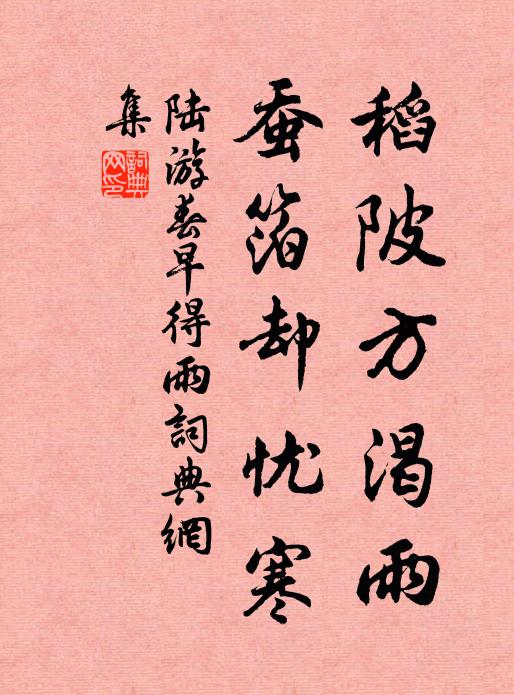 稻陂方渴雨
蚕箔却忧寒
陆游春早得雨詞典網
集
詞典网印